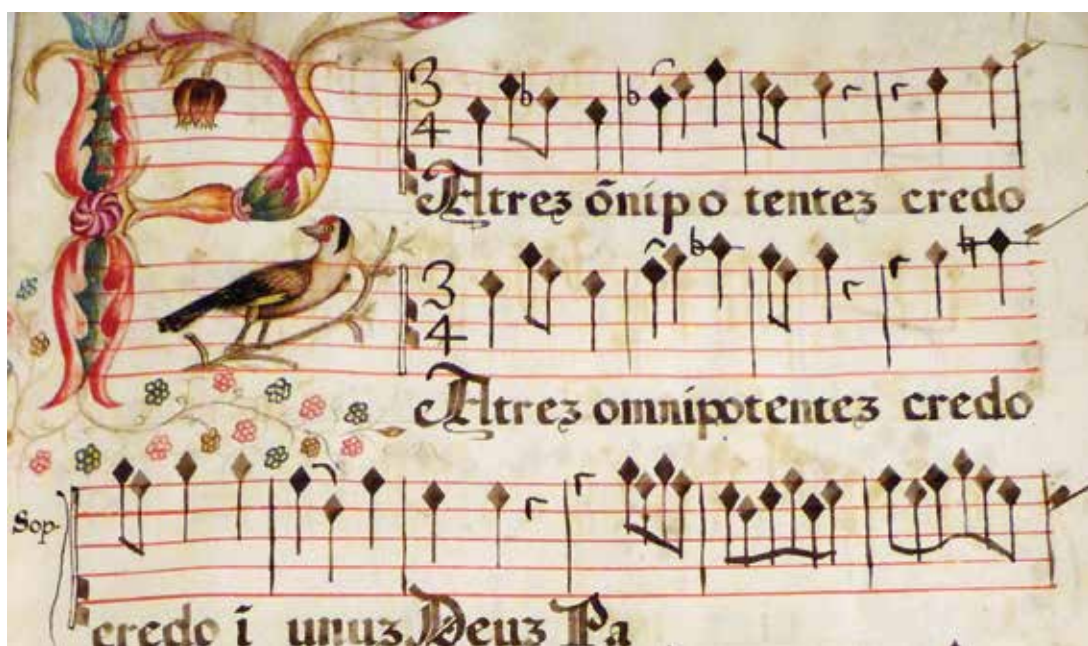 3/4
PAtrez õnipo tentez credo
3/4
Atrez omnipotentez credo
Sop.
credo ī unuz Deuz Pa